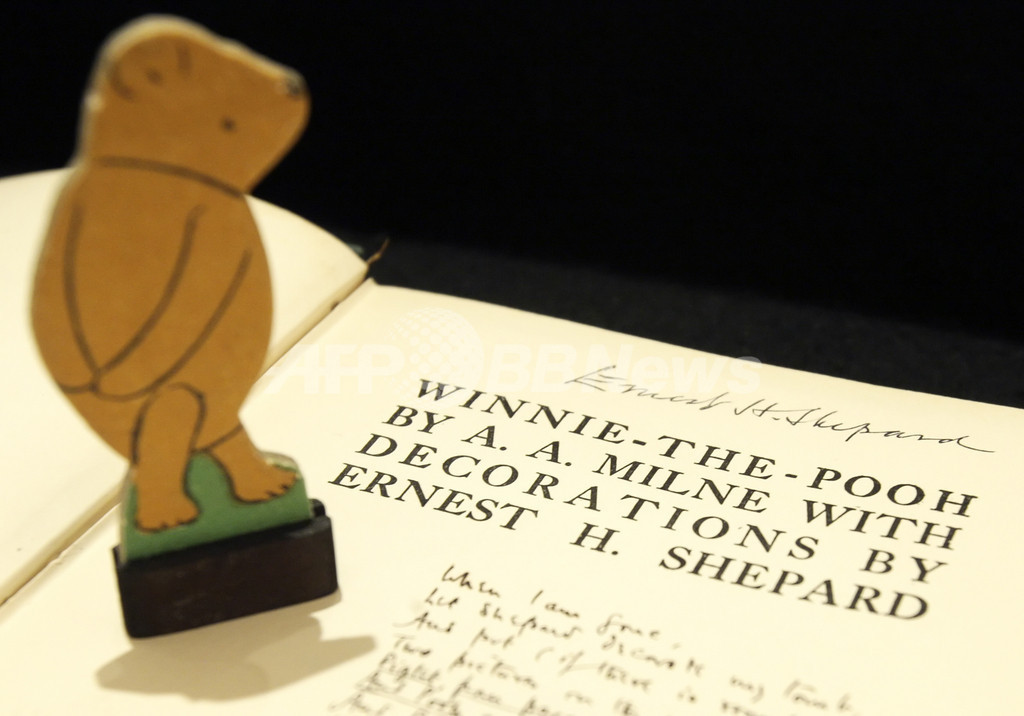 AFP BBNews
Ernest H. Shepard
WINNIE-THE-POOH
BY A. A. MILNE WITH
DECORATIONS BY
ERNEST H. SHEPARD
When I am gone,
Let Shepard decorate my tomb
And put (if there is room
Two pictures on